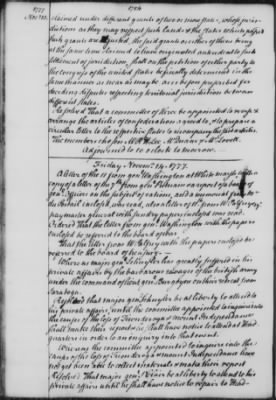 1777
Nov. 13.
claimed under different grants of two or more states, whose juris-
dictions as they may respect such lands & the states which passed
such grants are adjusted, the said grants or either of them being
at the same time claimed to have originated antecedent to such
settlement of jurisdiction, shall on the petition of either party to
the congress of the united states be finally determined in the
same manner as near as may be as is before prescribed for
deciding disputes respecting territorial jurisdiction between
different states.
Resolved That a committee of three be appointed to revise &
arrange the articles of confederation agreed to, & to prepare a
circular letter to the respective states to accompany the said articles.
The members chosen Mr R H Lee Mr Duane & Mr Lovell.
Adjourned to 10 o clock to morrow.
Friday Novem. 14. 1777.
A letter of the 11 from gen Washington at White marsh with a
copy of a letter of the from gen Putnam
on the subject of
was read, also a letter of 11 from W Palfrey
pay master general with sundry papers inclosed was read.
Ordered That the letter from gen Washington with the papers
inclosed be referred to the board of war.
That the letter from Mr Palfrey with the papers inclosed be re-
ferred to the board of treasury.
Whereas major gen Schuyler has greatly suffered in his
private affairs by the barbarous ravages of the british army
under the command of lieut gen Burgoyne on their retreat from
Saratoga.
Resolved that major gen Schuyler be at liberty to attend to
his private affairs, until the committee appointed to inquire into
the causes of the loss of Ticonderoga & mount Independence
shall make their report & shall have notice to attend at Head
quarters in order to an inquiry into that event.
Whereas the committee appointed to inquire into the
causes of the loss of Ticonderoga & mount Independence have
not yet been able to collect materials & make their report
Resolved That major gen St Clair be at liberty to attend to his
private affairs until he shall have notice to repair to Head